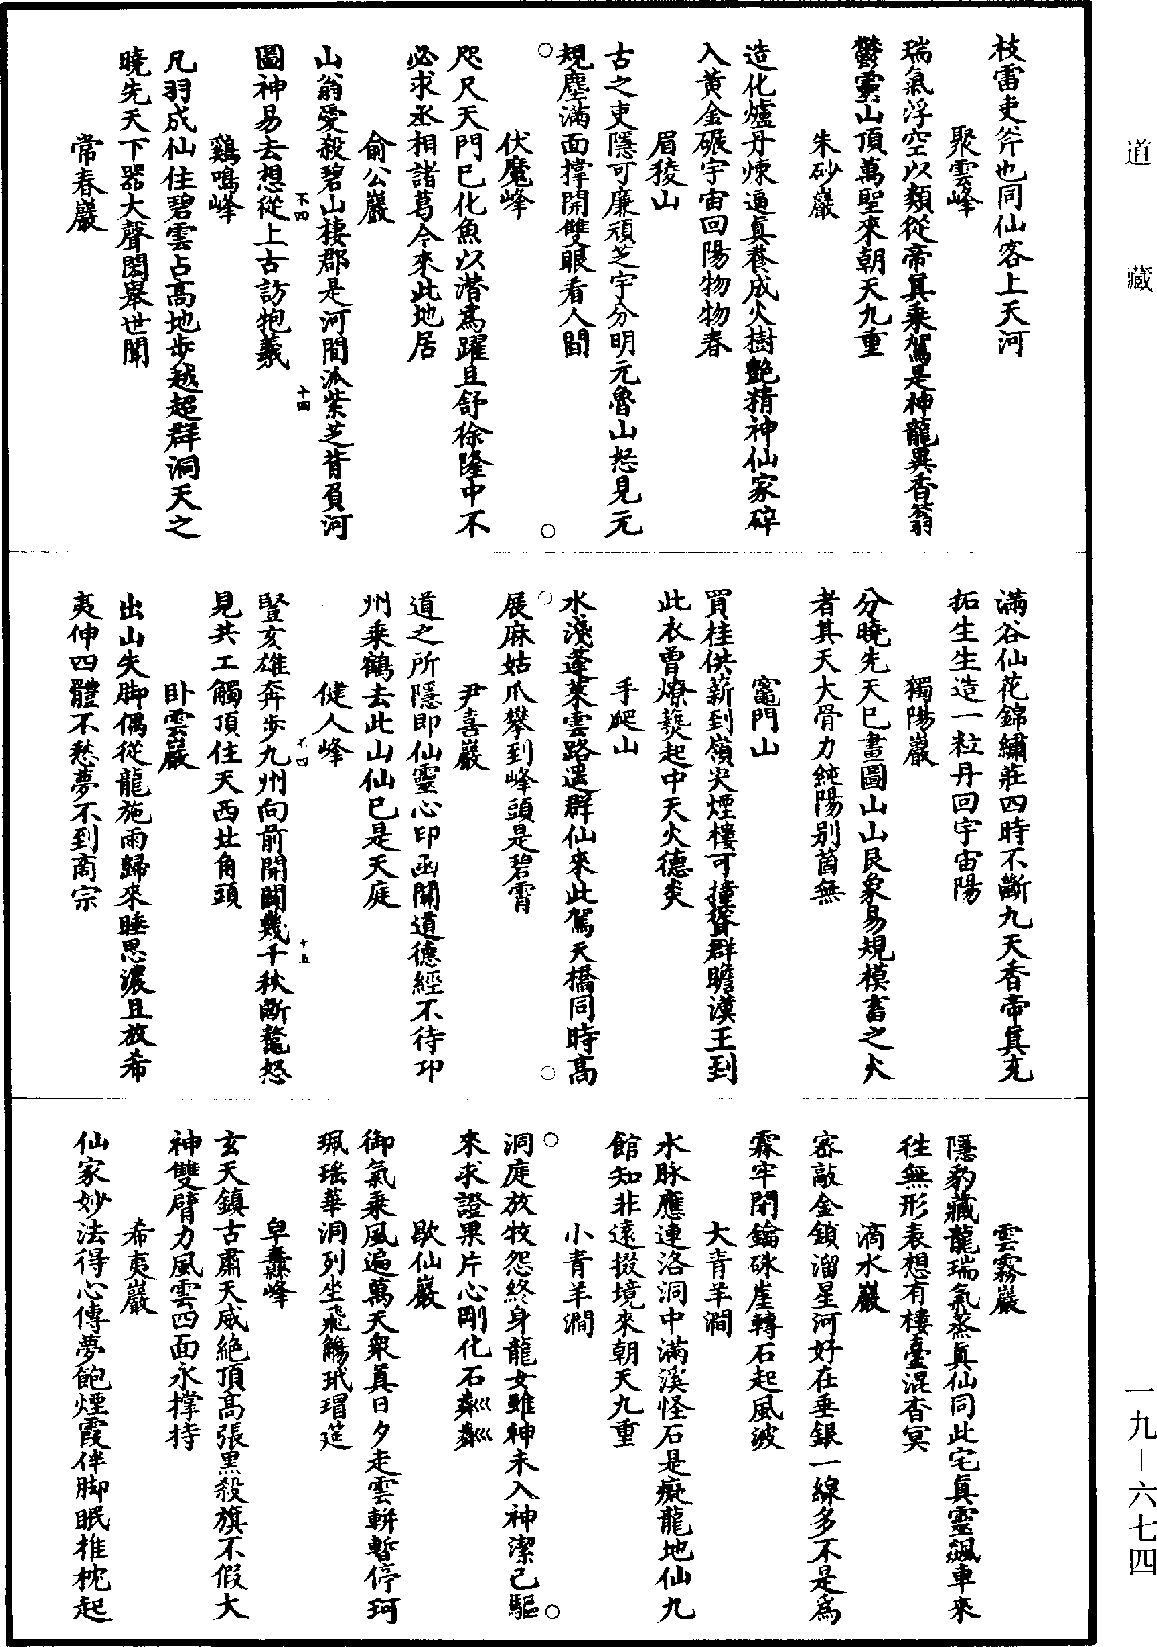 道藏
枝雷吏斧也同仙客上天河
聚雲峰
瑞氣浮空以類從帝真乘駕是神龍異香蓊
鬱靈山頂萬聖來朝天九重
朱砂巖
造化爐丹煉逼真養成火樹艷精神仙家碎
入黃金碾宇宙回陽物物春
眉稜山
古之吏隱可廉頑芝宇分明元魯山怒見元
規塵滿面撐開雙眼看人間
伏魔峰
咫尺天門已化魚以潛為躍且舒徐隆中不
必求丞相諸葛今來此地居
俞公巖
山翁愛殺碧山棲郡是河間派紫芝背負河
圖神易去想從上古訪狍羲
鷄鳴峰
凡羽成仙住碧雲占高地步越超群洞天之
曉先天下器大聲閎舉世聞
常春巖
滿谷仙花錦繡莊四時不斷九天香帝真充
拓生生造一粒丹回宇宙陽
獨陽巖
分曉先天已畫圖山山艮象易規模畜之大
者其天大骨力純陽別箇無
竈門山
買桂供薪到嶺尖煙樓可撞聳群瞻漢王到
此衣曾燎發起中天火德炎
手爬山
水淺蓬萊雲路遙群仙來此駕天橋同時高
展麻姑爪攀到峰頭是碧霄
尹喜巖
道之所隱即仙靈心印函關道德經不待邛
州乘鶴去此山仙已是天庭
健人峰
豎亥雄奔步九州向前開闢幾千秋斷鼇怒
見共工觸頂住天西北角頭
卧雲巖
出山失脚偶從龍施雨歸來睡思濃且放希
夷伸四體不愁夢不到商宗
雲霧巖
隱豹藏龍瑞氣蒸真仙同此宅真靈飆車來
往無形表想有樓臺混杳冥
滴水巖
密敲金鎖溜星河好在垂銀一線多不是為
霖牢閉鑰硃崖轉石起風波
大青羊澗
水脉應連洛洞中滿溪怪石是癡龍地仙九
館知非遠掇境來朝天九重
小青羊澗
洞庭放牧怨終身龍女雖神未入神潔己驅
來求證果片心剛化石粼粼
歇仙巖
御氣乘風遍萬天眾真日夕走雲軿暫停珂
珮瑤華洞列坐飛觴玳瑁筵
皁纛峰
玄天鎮古肅天威絶頂高張黑殺旗不假大
神雙臂力風雲四面永撐持
希夷巖
仙家妙法得心傳夢飽煙霞伴脚眠推枕起
一九—六七四